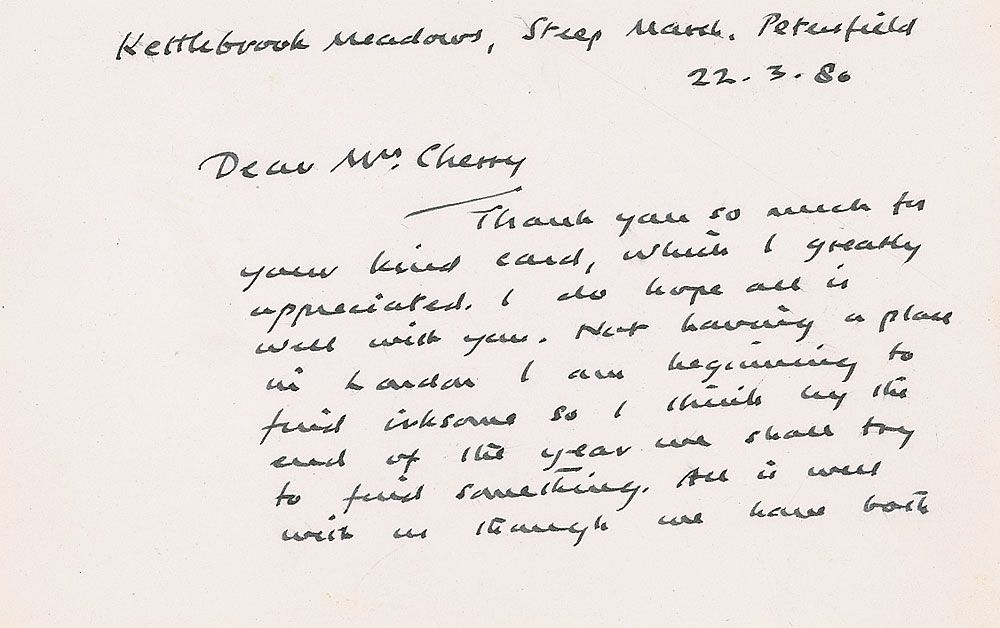 Kettlebrook Meadows, Steep Marsh. Petersfield
22.3.80
Dear Mrs. Cherry
Thank you so much for
your kind card, which I greatly
appreciated. I do hope all is
well with you. Not having a place
in London I am beginning to
find irksome so I think by the
end of the year we shall try
to find something. All is well
with us though we have both